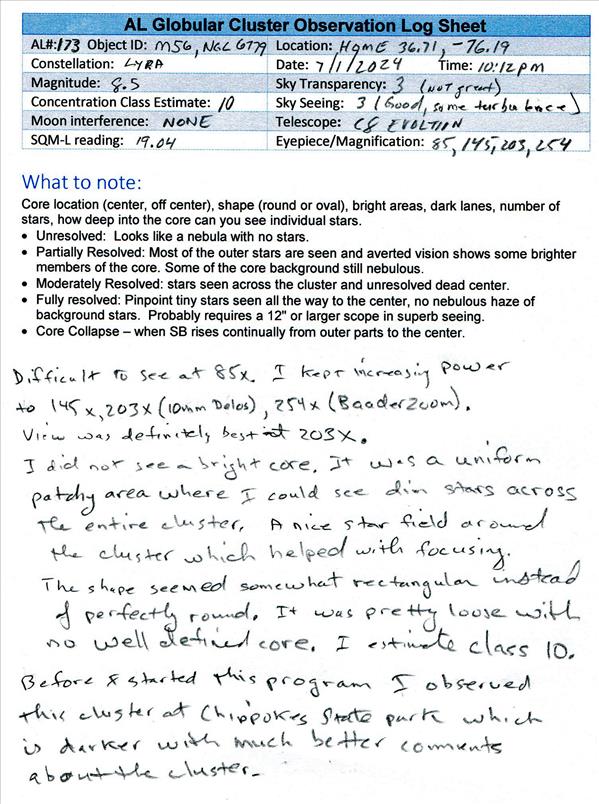 AL Globular Cluster Observation Log Sheet
AL#: 173 Object ID: M56, NGC 6779 Location: Home 36.71, -76.19
Constellation: LYRA Date: 7/1/2024 Time: 10:12pm
Magnitude: 8.5 Sky Transparency: 3 (Not great)
Concentration Class Estimate: 10 Sky Seeing: 3 (Good, some turbulence)
Moon interference: NONE Telescope: C8 EVOLTION
SQM-L reading: 19.04 Eyepiece/Magnification: 85, 145, 203, 254
What to note:
Core location (center, off center), shape (round or oval), bright areas, dark lanes, number of
stars, how deep into the core can you see individual stars.
• Unresolved: Looks like a nebula with no stars.
• Partially Resolved: Most of the outer stars are seen and averted vision shows some brighter
members of the core. Some of the core background still nebulous.
• Moderately Resolved: stars seen across the cluster and unresolved dead center.
• Fully resolved: Pinpoint tiny stars seen all the way to the center, no nebulous haze of
background stars. Probably requires a 12" or larger scope in superb seeing.
• Core Collapse – when SB rises continually from outer parts to the center.
Difficult to see at 85x. I kept increasing power
to 145x, 203x (10mm Delos), 254x (Baader Zoom).
View was definitely best at 203x.
I did not see a bright core. It was a uniform
patchy area where I could see dim stars across
the entire cluster. A nice star field around
the cluster which helped with focusing.
The shape seemed somewhat rectangular instead
of perfectly round. It was pretty loose with
no well defined core. I estimate class 10.
Before I started this program I observed
this cluster at Chippokes State park which
is darker with much better comments
about the cluster.